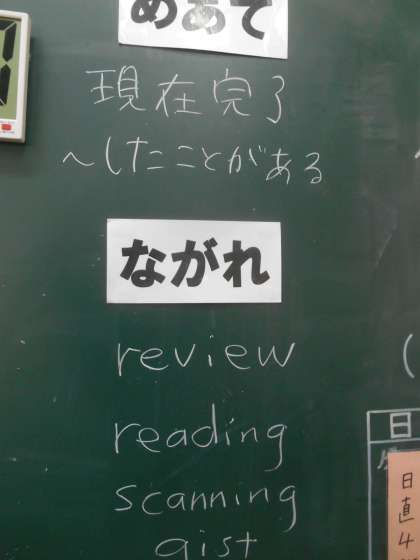 めあて
現在完了
～したことがある
ながれ
review
reading
scanning
gist
日
日直4